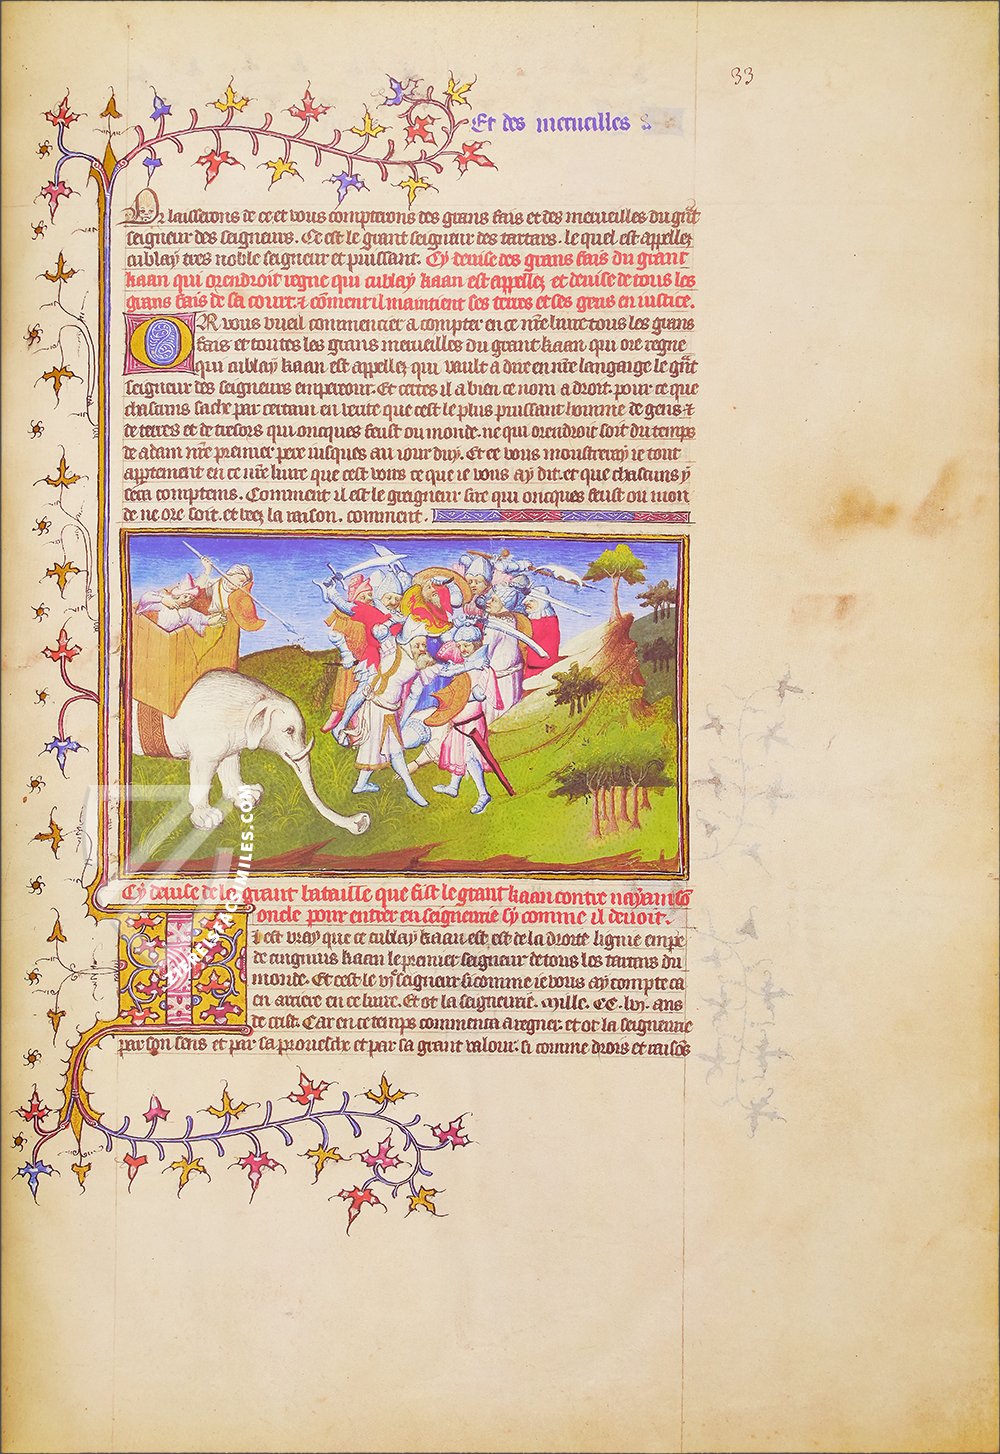 33
Et des merueilles
Or laisserons de ce et vous compterons des grans fais et des merueilles du gñt
seigneur des seigneurs. Ce est le grant seigneur des tartars. le quel est appellez
cublay tres noble seigneur et puissant. Cy deuise des grans fais du grant
kaan qui orendroit regne qui cublay kaan est appellez et deuise de tous les
grans fais de sa court. ⁊ cõment il maintient ses terres et ses gens en iustice.
OR vous vueil commencier a compter en ce nr̃e liure tous les grans
fais et toutes les grans merueilles du grant kaan qui ore regne
qui cublay kaan est appellez qui vault a dire en nr̃e langaige le gñt
seigneur des seigneurs empereour. Et certes il a bien ce nom a droit. pour ce que
chascuns sache par certain en verite que cest le plus puissant homme de gens ⁊
de terres et de tresors qui oncques feust ou monde. ne qui orendroit soit du temps
de adam nr̃e premier pere iusques au iour duy. Et ce vous monstreray ie tout
appertement en ce nr̃e liure que cest voirs ce que ie vous ay dit. et que chascuns y
sera comptens. Comment il est le greigneur sire qui oncques feust ou mon
de ne ore soit. et veez la raison. comment.
Cy deuise de la grant bataille que fist le grant kaan contre nayam sõ
oncle pour entrer en seigneurie sy comme il deuoit.
Il est vray que ce cublay kaan est est de la droite lignie empe
de cinguins kaan le premier seigneur de tous les tartars du
monde. Et cest le vjᵉ seigneur si comme ie vous ay compte ca
en arriere en ce liure. Et ot la seigneurie. Mille. CC. lvj. ans
de crist. Car en ce temps commenca a regner. et ot la seigneurie
par son sens et par sa prouesce et par sa grant valour. si comme drois et raisõs
ZIEREISFACSIMILES.COM